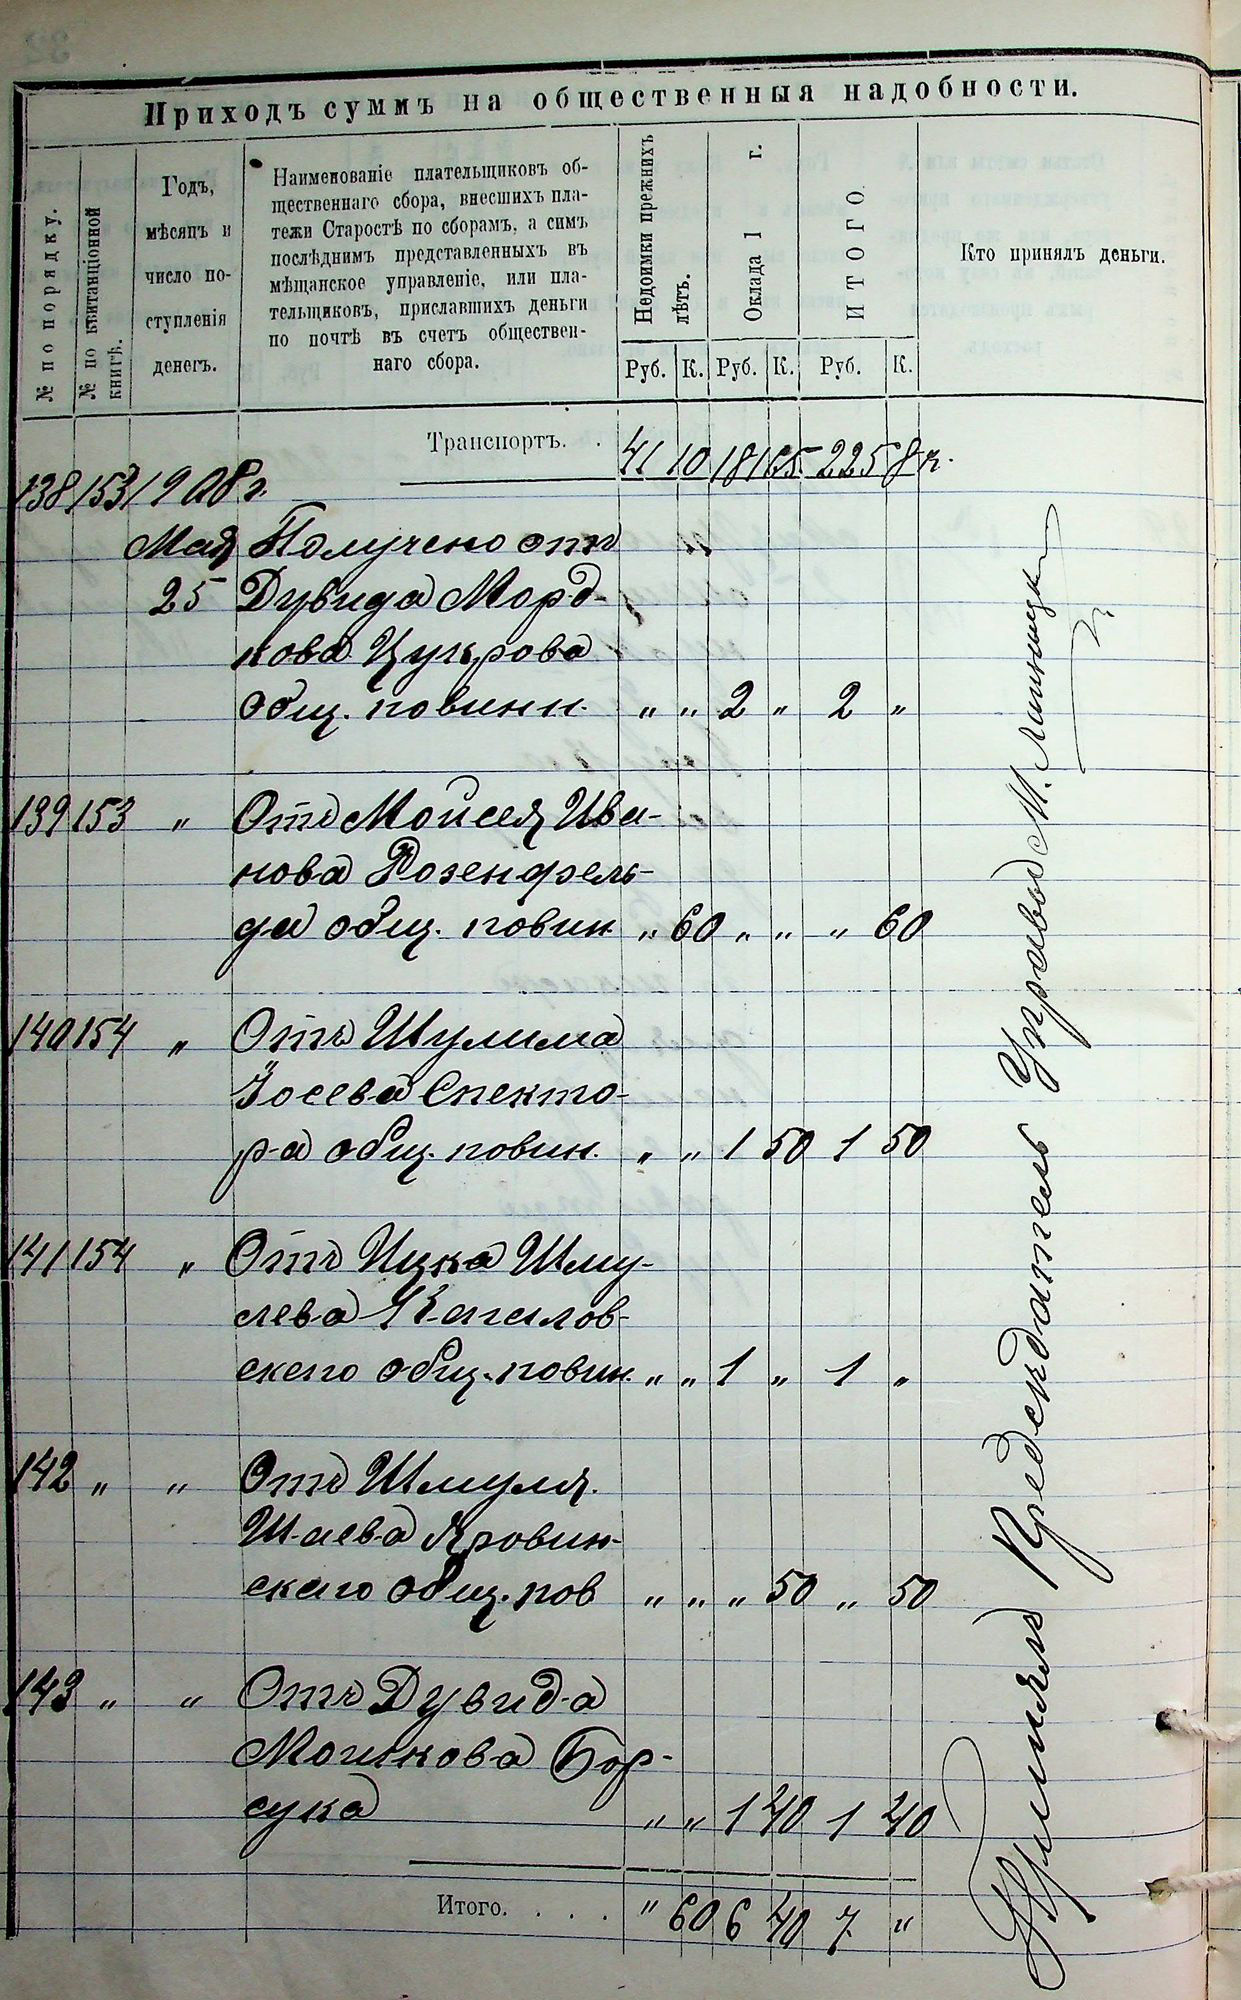 Приходъ суммъ на общественныя надобности.
№ по порядку.
№ по квитанціонной
книгѣ.
Годъ,
мѣсяцъ и
число по-
ступленія
денегъ.
Наименованіе плательщиковъ об-
щественнаго сбора, внесшихъ пла-
тежи Старостѣ по сборамъ, а симъ
послѣднимъ представленныхъ въ
мѣщанское управленіе, или пла-
тельщиковъ, приславшихъ деньги
по почтѣ въ счетъ обществен-
наго сбора.
Недоимки прежнихъ
лѣтъ.
Оклада 1 г.
ИТОГО.
Кто принялъ деньги.
Руб. К. Руб. К. Руб. К.
Транспортъ. . 41 10 181 65 225 8 к.
138 153 1908 г.
Мая Получено отъ
25 Дувида Морд-
кова Цукрова
общ. повинн. „ „ 2 „ 2 „
139 153 „ Отъ Мойсея Ива-
нова Розенфель-
да общ. повин. „ 60 „ „ „ 60
140 154 „ Отъ Шулима
Іосева Спекто-
ра общ. повин. „ „ 1 50 1 50
141 154 „ Отъ Ицка Шму-
лева
скаго общ. повин. „ „ 1 „ 1 „
142 „ „ Отъ Шмуля
Шаева Яровин-
скаго общ. пов „ „ „ 50 „ 50
143 „ „ Отъ Дувида
Мошкова Бор-
сука „ „ 1 40 1 40
Итого. . . . „ 60 6 40 7 „
Принялъ Председатель Управы М.